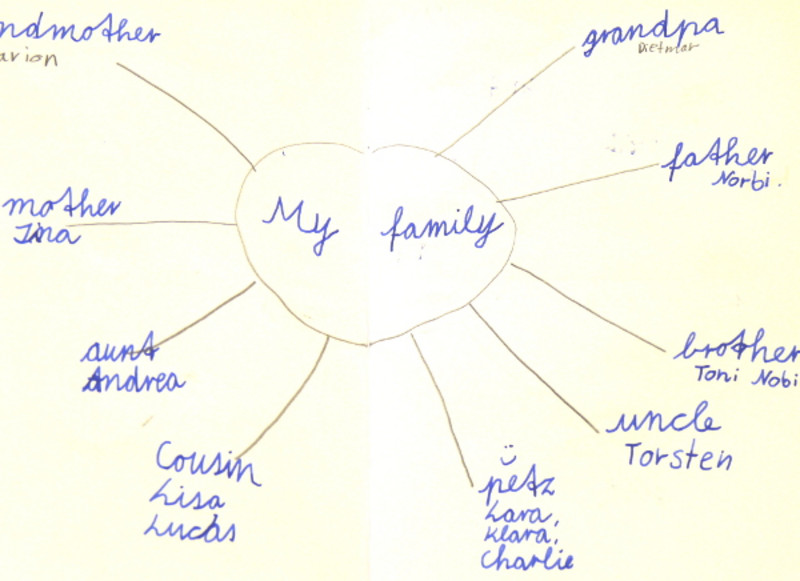 ndmother
arion
grandpa
Dietmar
father
Norbi.
My family
mother
Tina
brother
Toni Nobi
aunt
Andrea
uncle
Torsten
Cousin
Lisa
Lucas
petz
Lara,
Klara,
Charlie